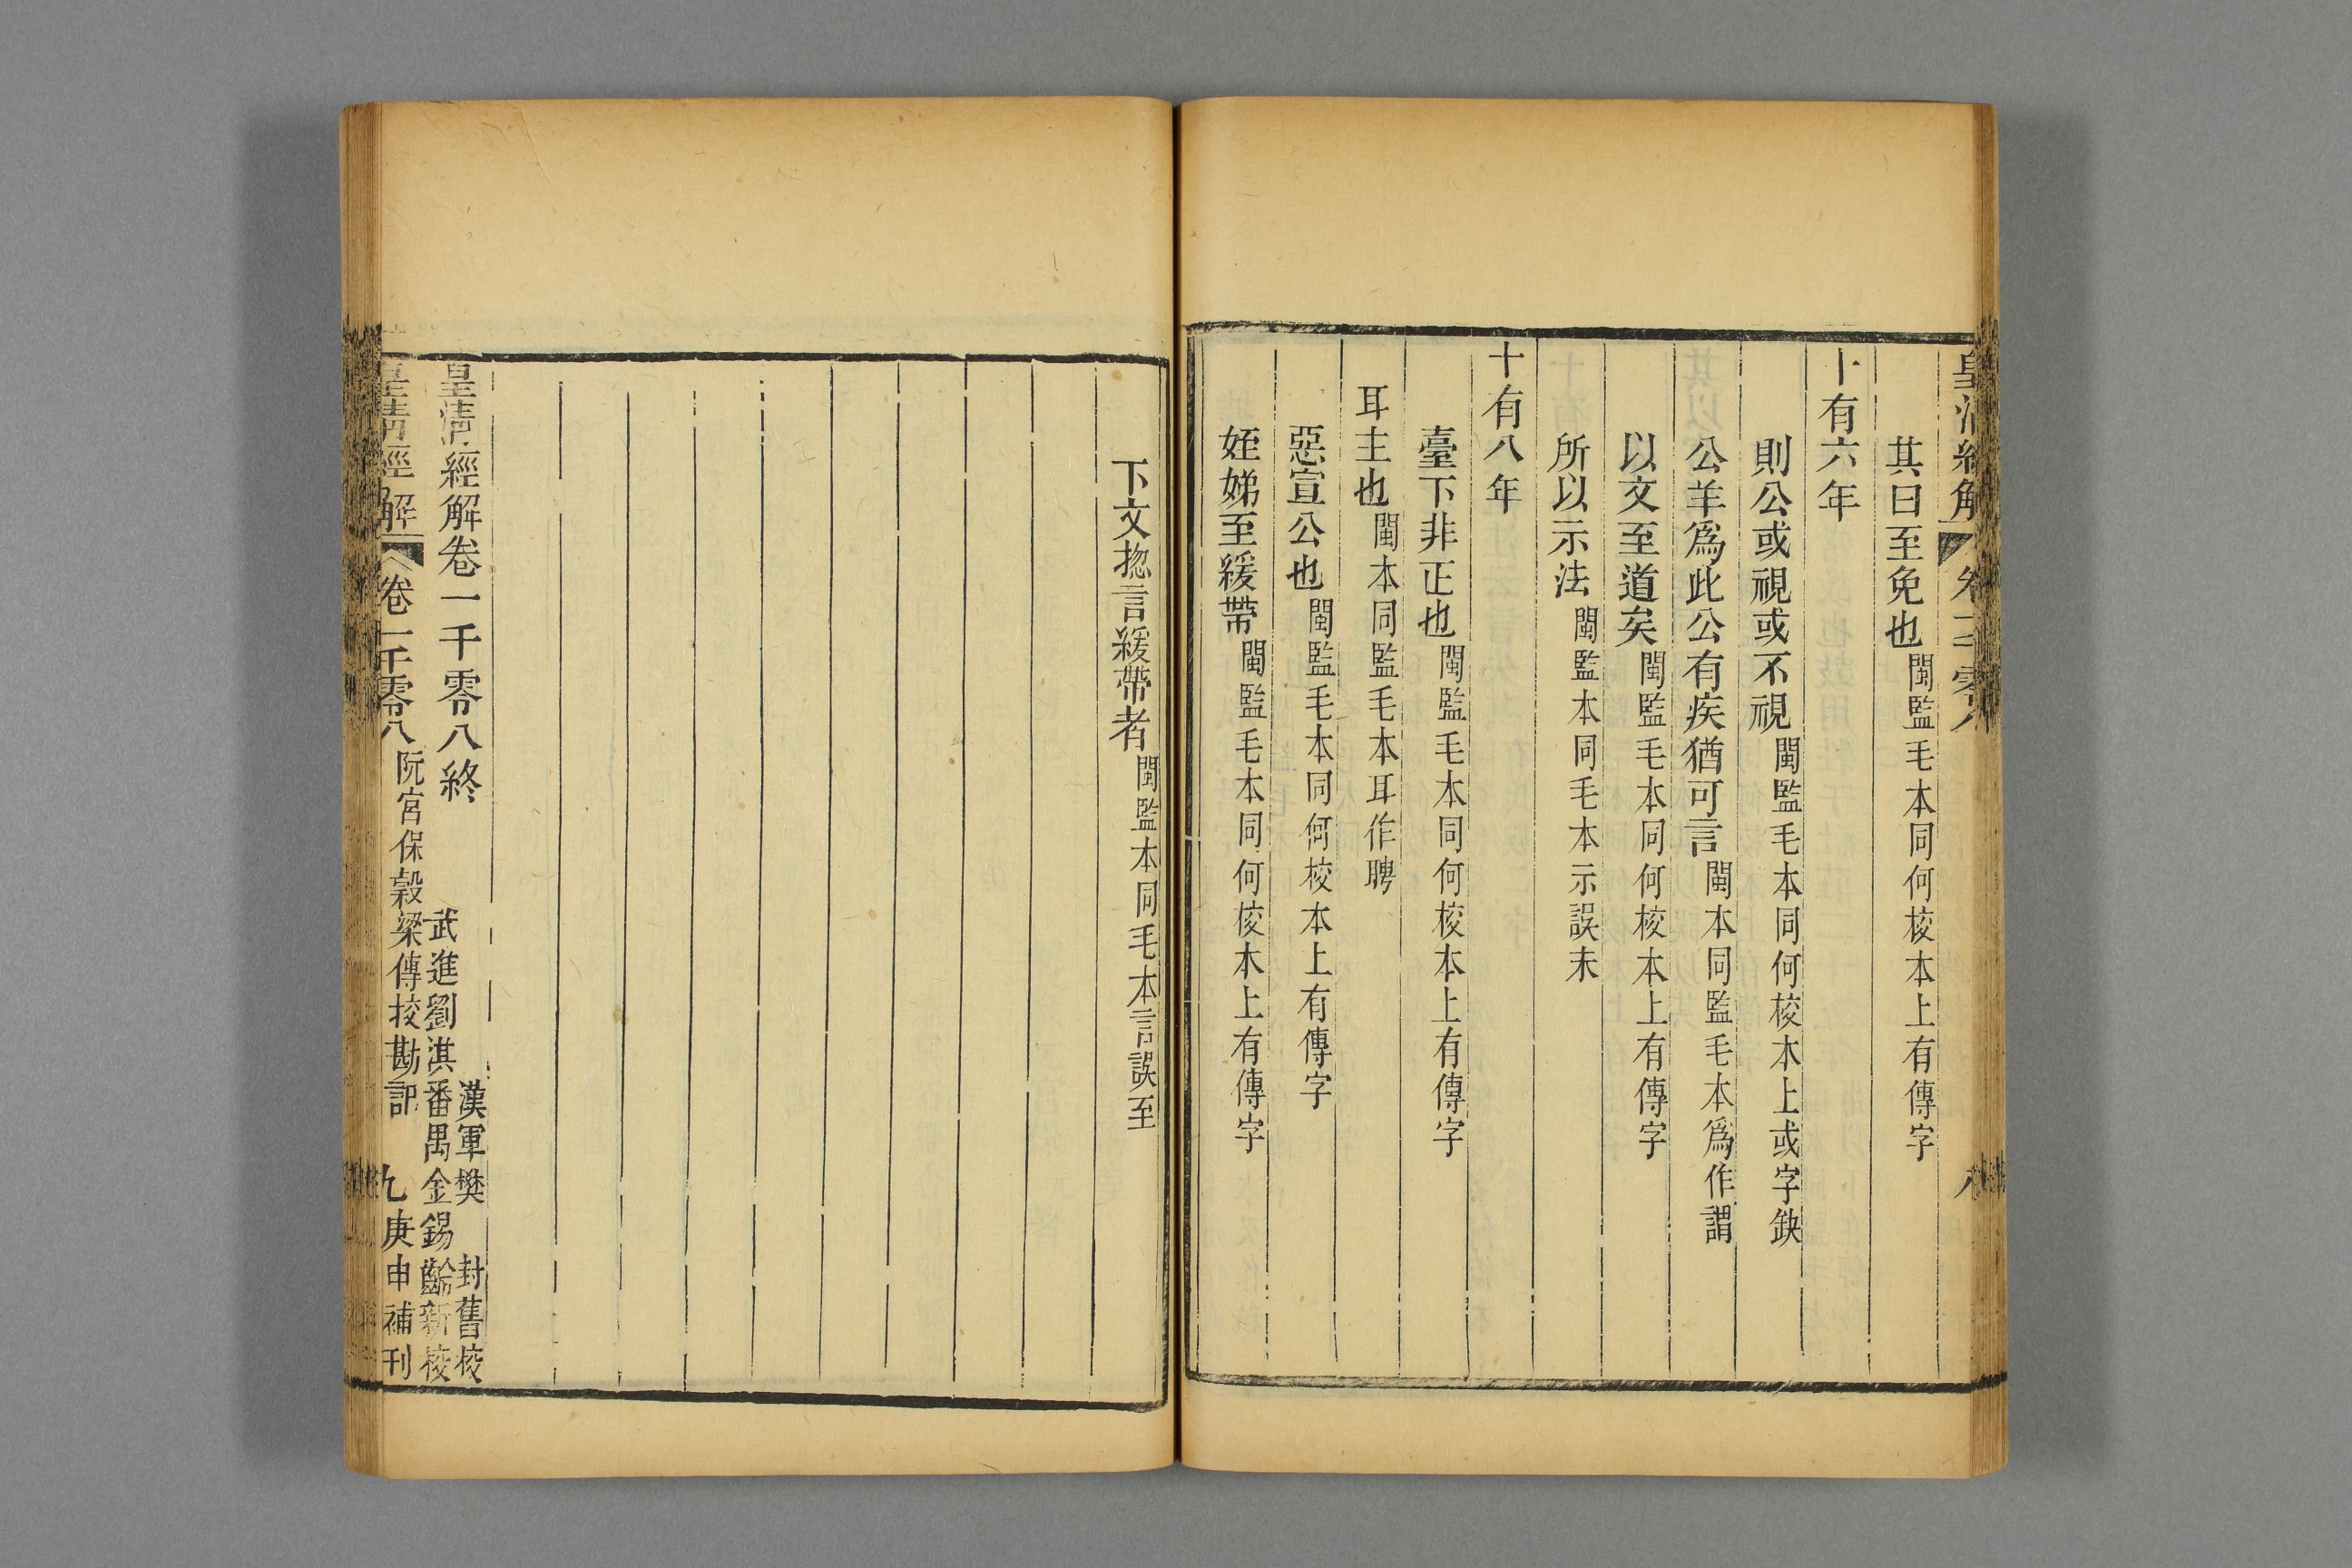 皇清經解 卷一千零八 八
其曰至免也閩監毛本同何校本上有傳字
十有六年
則公或視或不視閩監毛本同何校本上或字缺
公羊爲此公有疾猶可言閩本同監毛本爲作謂
以文至道矣閩監毛本同何校本上有傳字
所以示法閩監本同毛本示誤未
十有八年
臺下非正也閩監毛本同何校本上有傳字
耳主也閩本同監毛本耳作聘
惡宣公也閩監毛本同何校本上有傳字
姪娣至緩帶閩監毛本同何校本上有傳字
下文揔言緩帶者閩監本同毛本言誤至
漢軍樊封舊校
皇清經解卷一千零八終
武進劉淇番禺金錫齡新校
皇清經解 卷一千零八 阮宮保穀梁傳挍勘記 九 庚申補刊